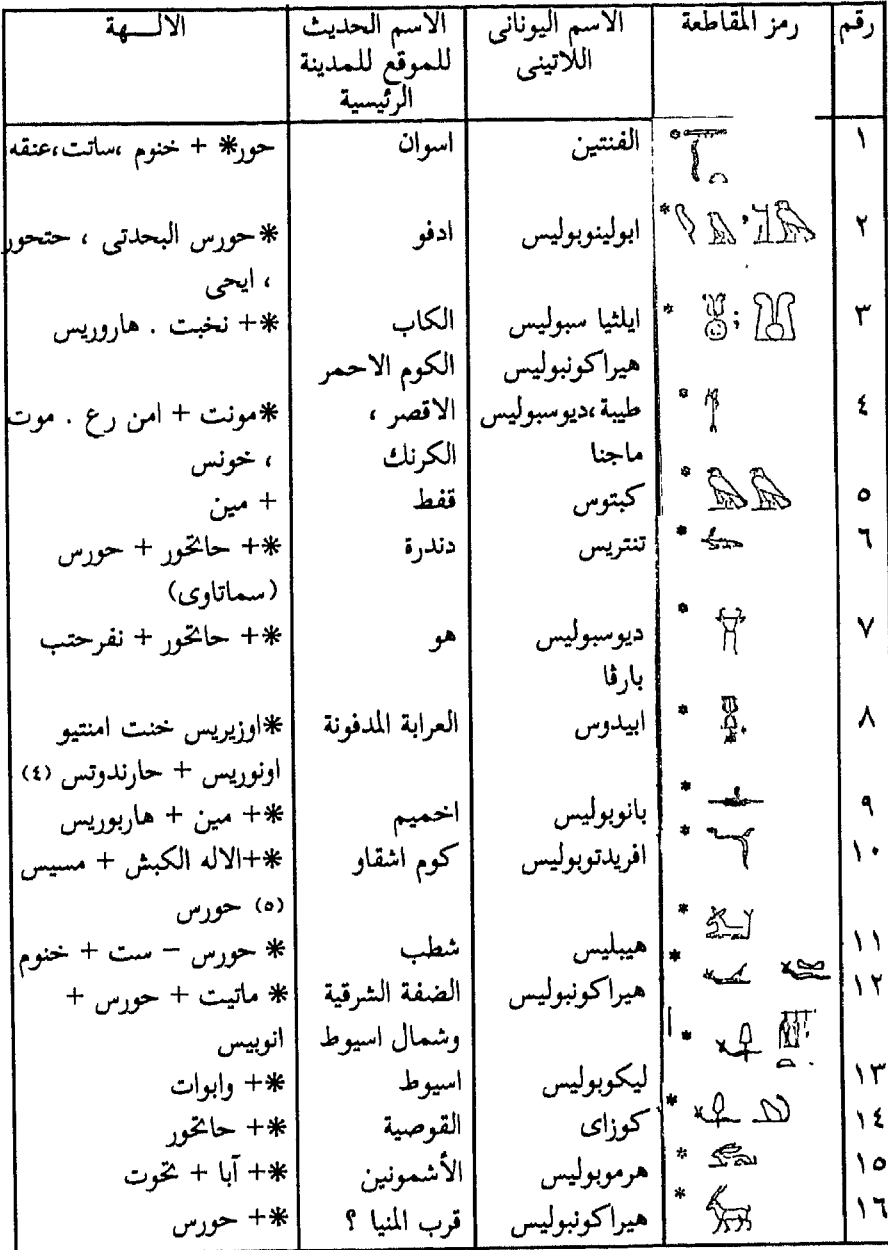 رقم | رمز المقاطعة | الاسم اليونانى | الاسم الحديث | الالـــهة
اللاتينى | للموقع للمدينة
الرئيسية
١ | * | الفنتين | اسوان | حور* + خنوم ،ساتت،عنقه
٢ | * | ابولينوبوليس | ادفو | *حورس البحدتى ، حتحور
، ايحى
٣ | * ; | ايلثيا سبوليس | الكاب | *+ نخبت . هاروريس
هيراكونبوليس | الكوم الاحمر
٤ | * | طيبة،ديوسبوليس | الاقصر ، | *مونت + امن رع . موت
ماجنا | الكرنك | ، خونس
٥ | * | كبتوس | قفط | + مين
٦ | * | تنتريس | دندرة | *+ حاتحور + حورس
(سماتاوى)
٧ | * | ديوسبوليس | هو | *+ حاتحور + نفرحتب
بارڤا
٨ | * | ابيدوس | العرابة المدفونة | *اوزيريس خنت امنتيو
اونوريس + حارندوتس (٤)
٩ | * | بانوبوليس | اخميم | *+ مين + هاربوريس
١٠ | * | افريدتوبوليس | كوم اشقاو | *+الاله الكبش + مسيس
(٥) حورس
١١ | * | هيبليس | شطب | * حورس – ست + خنوم
١٢ | * | هيراكونبوليس | الضفة الشرقية | * ماتيت + حورس +
أ | وشمال اسيوط | انوبيس
١٣ | * | ليكوبوليس | اسيوط | *+ وابوات
١٤ | * | كوزاى | القوصية | *+ حاتحور
١٥ | * | هرموبوليس | الأشمونين | *+ آبا + تحوت
١٦ | * | هيراكونبوليس | قرب المنيا ؟ | *+ حورس